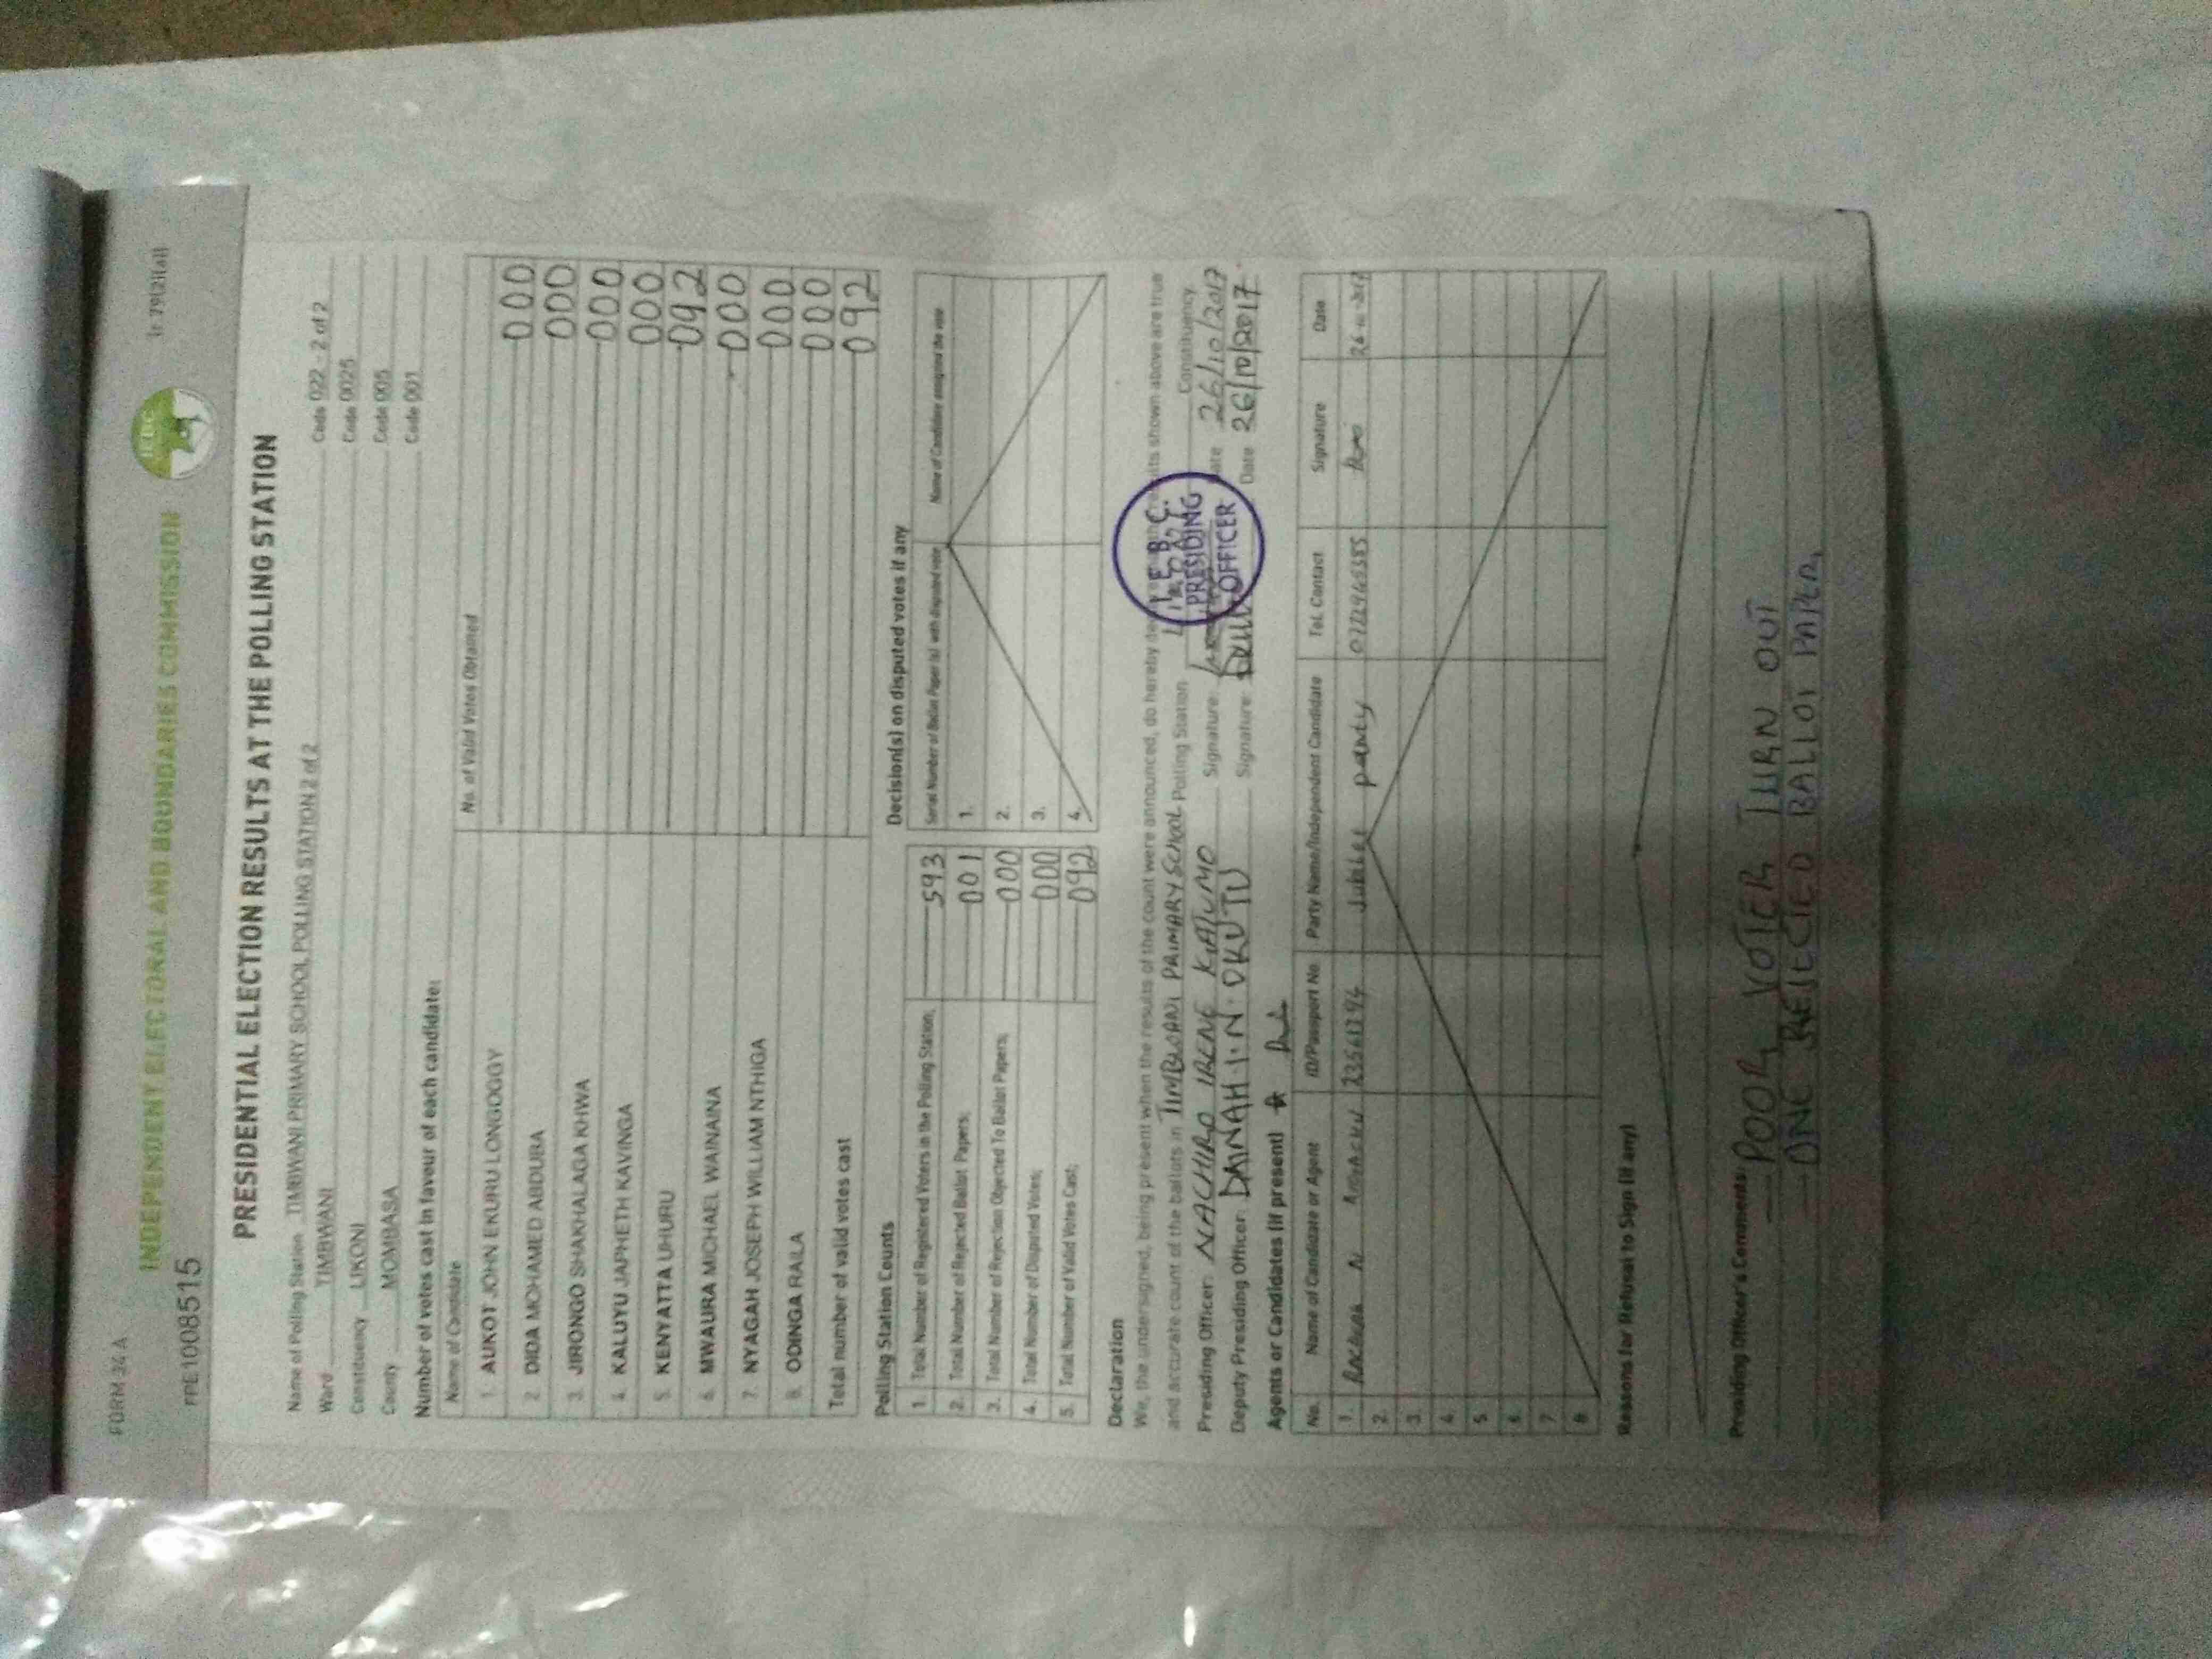 FORM 34 A
(r 79(2)(a))
INDEPENDENT ELECTORAL AND BOUNDARIES COMMISSION
IEBC
PRE1008515
PRESIDENTIAL ELECTION RESULTS AT THE POLLING STATION
Name of Polling Station TIMBWANI PRIMARY SCHOOL POLLING STATION 2 of 2 Code 022 - 2 of 2
Ward TIMBWANI Code 0025
Constituency LIKONI Code 005
County MOMBASA Code 001
Number of votes cast in favour of each candidate:
Name of Candidate No. of Valid Votes Obtained
1. AUKOT JOHN EKURU LONGOGGY 000
2 DIDA MOHAMED ABDUBA 000
3. JIRONGO SHAKHALAGA KHWA 000
4. KALUYU JAPHETH KAVINGA 000
5. KENYATTA UHURU 092
6. MWAURA MICHAEL WAINAINA 000
7. NYAGAH JOSEPH WILLIAM NTHIGA 000
8. ODINGA RAILA 000
Total number of valid votes cast 092
Polling Station Counts
1. Total Number of Registered Voters in the Polling Station; 593
2. Total Number of Rejected Ballot Papers; 001
3. Total Number of Rejection Objected To Ballot Papers; 000
4. Total Number of Disputed Votes; 000
5. Total Number of Valid Votes Cast; 092
Decision(s) on disputed votes if any
Serial Number of Ballot Paper (s) with disputed vote Name of Candidate assigned the vote
1.
2.
3.
4.
Declaration
We, the undersigned, being present when the results of the count were announced, do hereby declare that the results shown above are true
and accurate count of the ballots in TIMBWANI PRIMARY SCHOOL Polling Station LIKONI Constituency
Presiding Officer: NACHIRO IRENE KATUMO Signature: Date 26/10/2017
Deputy Presiding Officer: DAINAH.I.N.OKUTU Signature: Date 26/10/2017
I. E. B. C.
PRESIDING
OFFICER
Agents or Candidates (if present)
No. Name of Candidate or Agent ID/Passport No. Party Name/Independent Candidate Tel. Contact Signature Date
1. N Jubilee party
2.
3.
4.
5
6.
7
8
Reasons for Refusal to Sign (if any)
Presiding Officer's Comments: — POOR VOTER TURN OUT
— ONE REJECTED BALLOT PAPER.